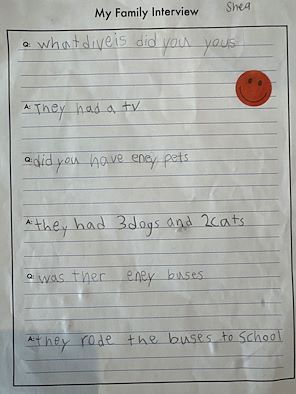 My Family Interview
Shea
Q: what diveis did you yous
A: They had a tv
Q: did you have eney pets
A: they had 3dogs and 2cats
Q: was ther eney buses
A: they rode the buses to School